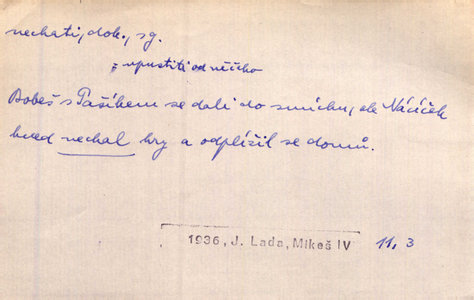 nechati, dok., sg.
; upustiti od něčeho
Bobeš s Pašíkem se dali do smíchu, ale Nácíček
hned nechal hry a odplížil se domů.
1936, J. Lada, Mikeš IV 11, 3